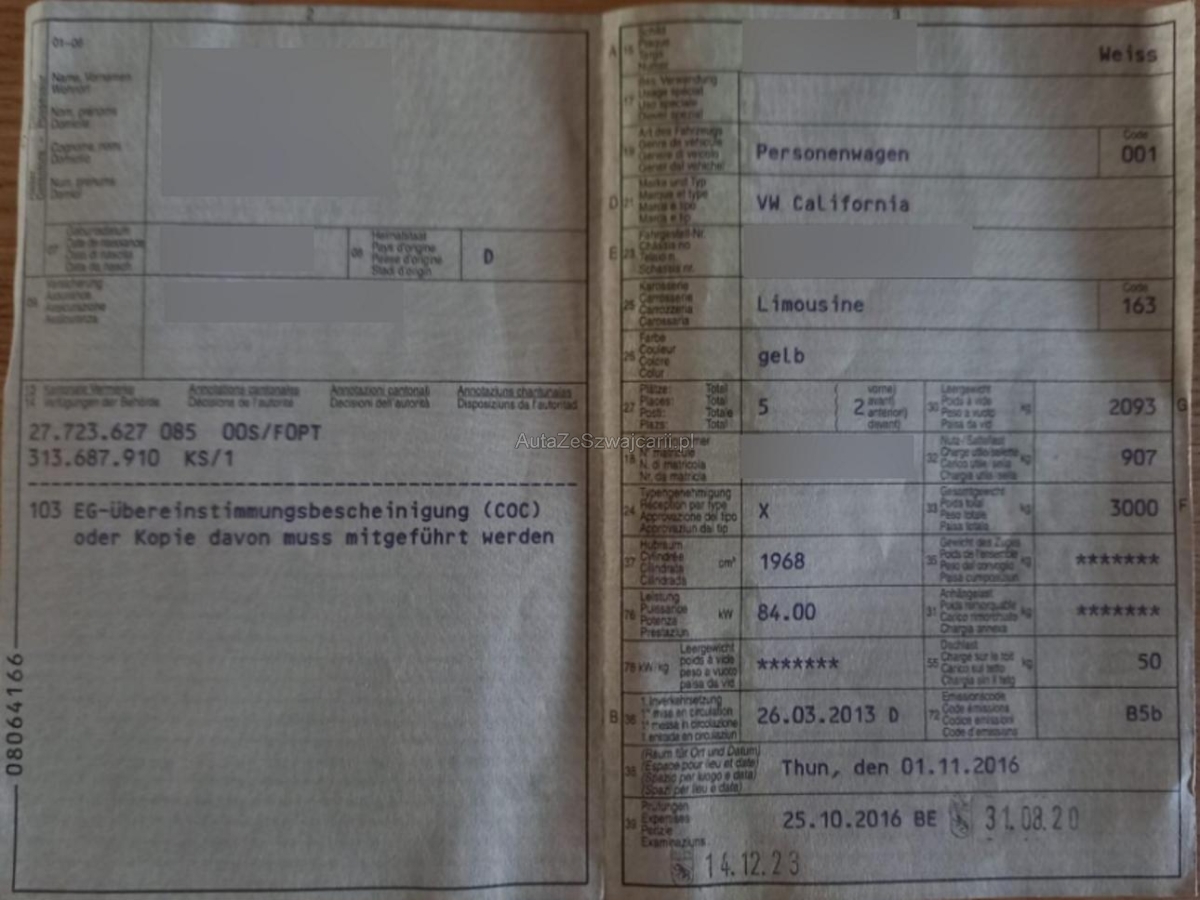 2
01-06
Name, Vornamen
Wohnort
Nom, prénoms
Domicile
Cognome, nomi
Domicilio
Num, prenums
Domicil
07
Geburtsdatum
Date de naissance
Data di nascita
Data da nasch.
08
Heimatstaat
Pays d'origine
Paese d'origine
Stadi d'origin
D
09
Versicherung
Assurance
Assicurazione
Verfügungen der Behörde
Annotations cantonales
Décisions de l'autorité
Annotazioni cantonali
Decisioni dell'autorità
Annotaziuns chantunalas
Disposiziuns da l'autoritad
27.723.627 085 OOS/FOPT
313.687.910 KS/1
103 EG-Übereinstimmungsbescheinigung (COC)
oder Kopie davon muss mitgeführt werden
08064166
3
A
15
Schild
Plaque
Targa
Numer
Weiss
17
Bes. Verwendung
Usage spécial
Uso speciale
Diever spezial
19
Art des Fahrzeugs
Genre de véhicule
Genere di veicolo
Gener dal vehichel
Personenwagen
Code
001
D
21
Marke und Typ
Marque et type
Marca e tipo
Marca e tip
VW California
E
23
Fahrgestell-Nr.
Châssis no
Telaio n.
Schassis nr.
25
Karosserie
Carrosserie
Carrozzeria
Carossaria
Limousine
Code
163
26
Farbe
Couleur
Colore
Colur
gelb
27
Plätze: Total
Places: Total
Posti: Totale
Plazs: Total
5
( vorne)
2 avant)
anteriori)
( davant)
30
Leergewicht
Poids à vide
Peso a vuoto
Paisa da vid
kg
2093
G
18
N° matricule
N. di matricola
Nr. da matricla
32
Nutz-/Sattellast
kg
907
24
Typengenehmigung
Réception par type
Approvazione del tipo
Approvaziun dal tip
X
33
Gesamtgewicht
Poids total
Peso totale
Paisa totala
kg
3000
F
37
Hubraum
Cylindrée
Cilindrata
Cilindrada
cm³
1968
35
Gewicht des Zuges
Poids de l'ensemble
Peso del convoglio
Paisa cumposiziun
kg
*******
76
Leistung
Puissance
Potenza
Prestaziun
kW
84.00
31
Anhängelast
Poids remorquable
Carico rimorchiato
Chargia annexa
kg
*******
78 kW/kg
Leergewicht
poids à vide
peso a vuoto
paisa da vid
*******
55
Dachlast
Charge sur le toit
Carico sul tetto
Chargia sin il tetg
kg
50
B
36
1. Inverkehrsetzung
1re mise en circulation
1a messa in circolazione
1. entrada en circulaziun
26.03.2013 D
72
Emissionscode
Code émissions
Codice emissioni
Code d'emissiuns
B5b
38
(Raum für Ort und Datum)
(Espace pour lieu et date)
(Spazio per luogo e data)
(Spazi per lieu e data)
Thun, den 01.11.2016
39
Prüfungen
Expertises
Perizie
Examinaziuns
25.10.2016 BE 31.08.20
14.12.23
AutaZeSzwajcarii.pl